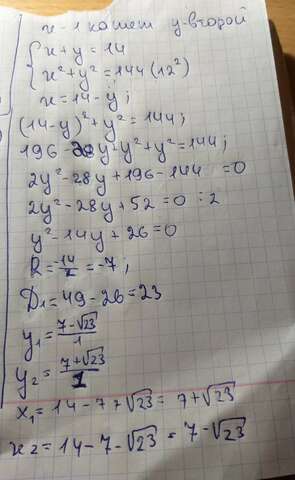 x - 1 катет y - второй
{ x + y = 14
x² + y² = 144 (12²)
x = 14 - y;
(14 - y)² + y² = 144;
196 - 28y + y² + y² = 144;
2y² - 28y + 196 - 144 = 0
2y² - 28y + 52 = 0 :2
y² - 14y + 26 = 0
R = -14/2 = -7;
D₁ = 49 - 26 = 23
y₁ = (7 - √23)/1
y₂ = (7 + √23)/1
x₁ = 14 - 7 + √23 = 7 + √23
x₂ = 14 - 7 - √23 = 7 - √23